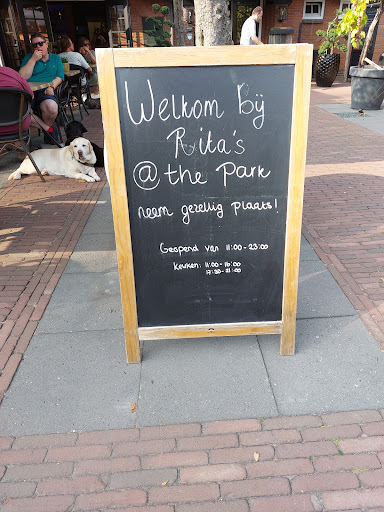 Welkom bij
Rita's
@ the Park
neem gezellig plaats!
Geopend van 11:00-23:00
Keuken: 11:00-16:00
17:30-21:00